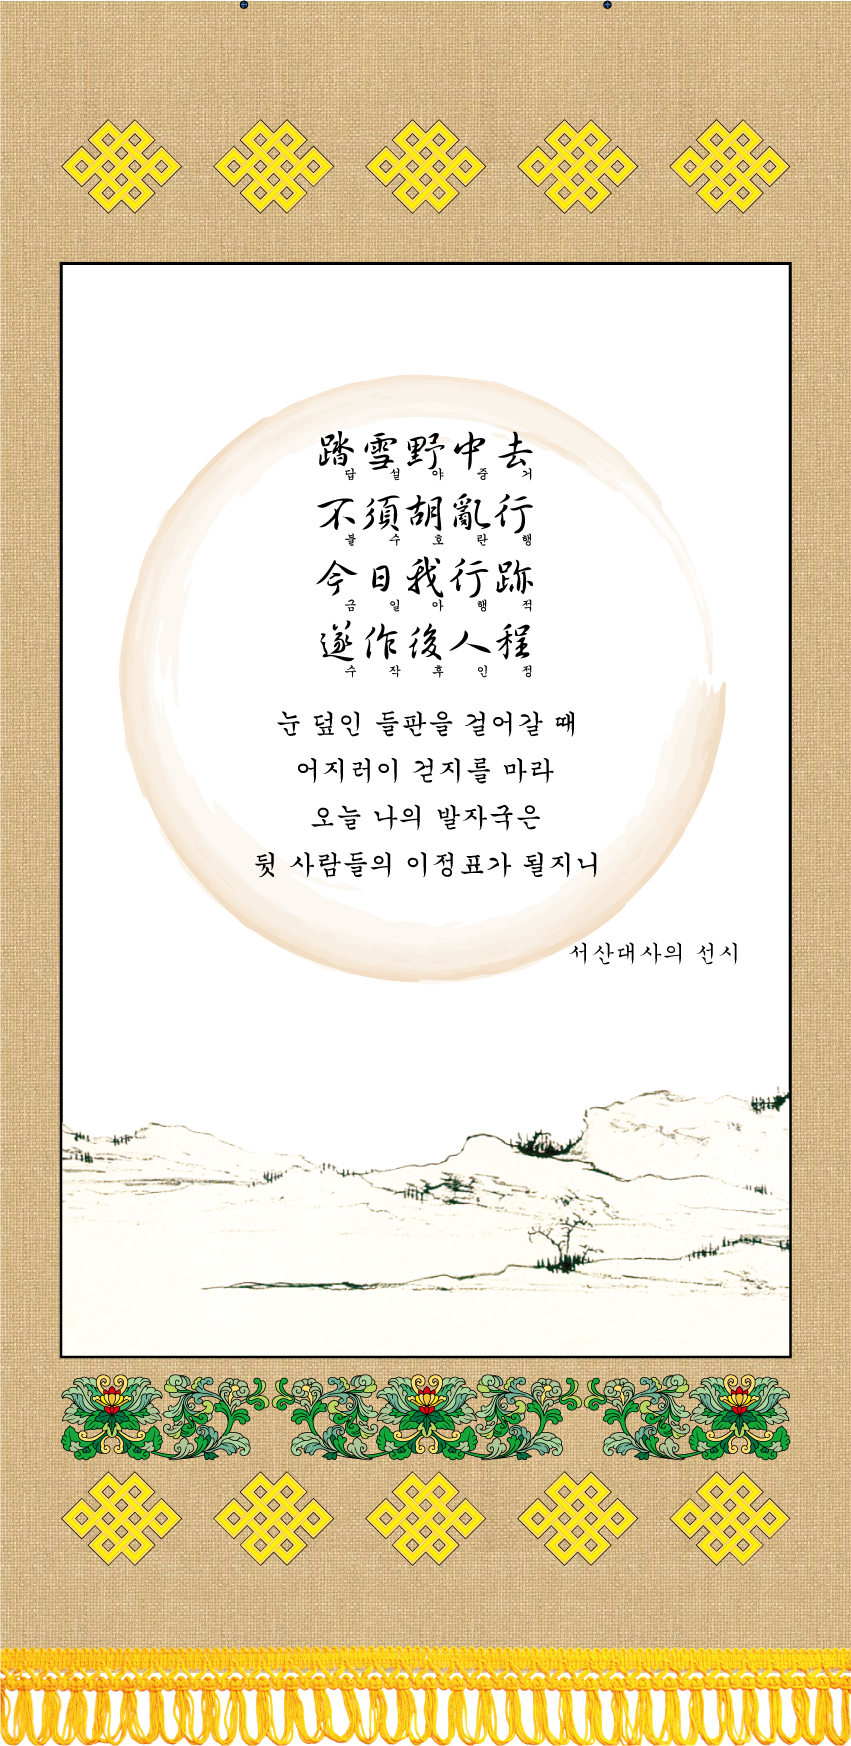 踏雪野中去
답설야중거
不須胡亂行
불수호란행
今日我行跡
금일아행적
遂作後人程
수작후인정
눈 덮인 들판을 걸어갈 때
어지러이 걷지를 마라
오늘 나의 발자국은
뒷 사람들의 이정표가 될지니
서산대사의 선시